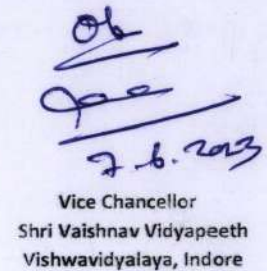 Ok
7.6.2023
Vice Chancellor
Shri Vaishnav Vidyapeeth
Vishwavidyalaya, Indore